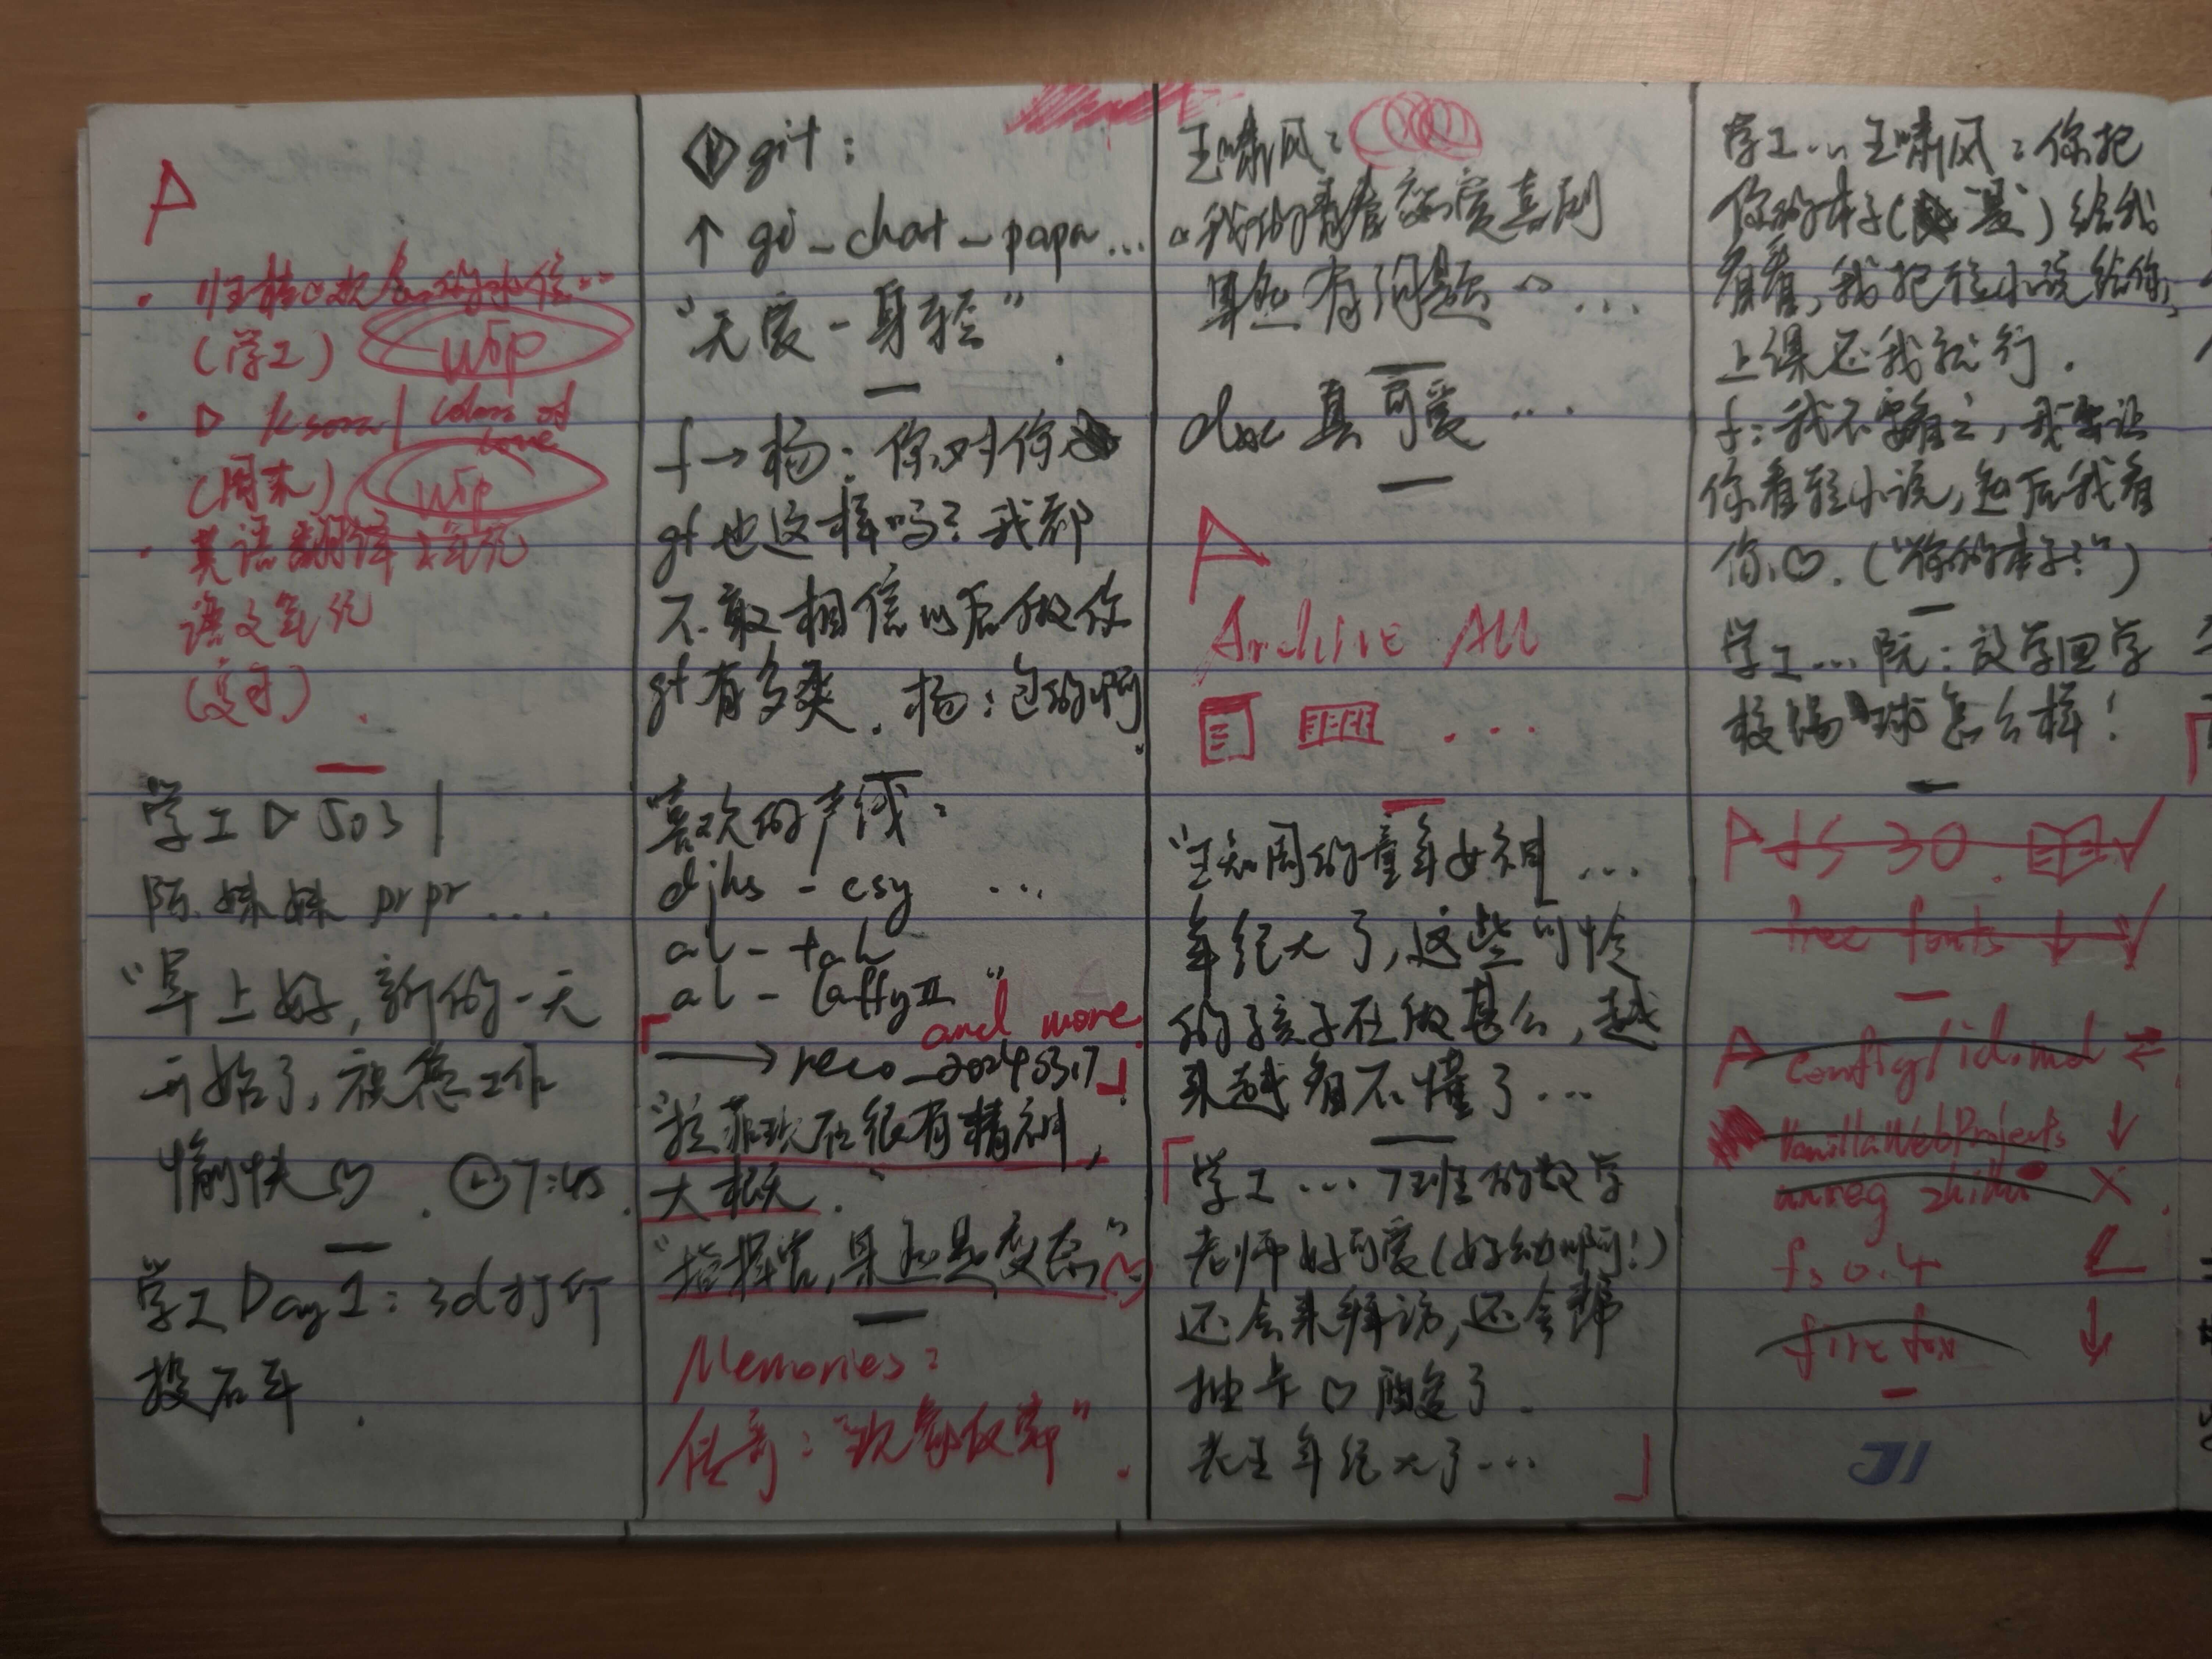 A
(学工) WIP
(周末) WIP
英语翻译
语文
学工 ▷ 503 |
陈妹妹 prpr ...
“早上好,新的一天
开始了,祝您工作
愉快♡. 7:45.
学工Day1:3d打印
投石车.
git:
↑ gi_chat_papa...
“无爱一身轻”.
f→杨:你对你
gf也这样吗?我都
不敢相信以后做你
gf有多爽.杨:包的啊.
喜欢的声线:
djhs - csy ...
al - tah
al - laffyII
and more
→ reco_20240317
“拉菲现在很有精神,
大概.”
“指挥官,果然是变态”
Memories:
传奇:
王啸风:
有问题” ...
真可爱 ...
A
Archive All
...
“王知周的童年女神 ...
年纪大了,这些可怜
的孩子在做甚么,越
来越看不懂了...
学工...7班的数学
老师好可爱(好幼啊!)
还会来拜访,还会帮
抽卡♡酸受了.
老王年纪大了...
学工...王啸风:你把
你的本子(漫)给我
看看,我把轻小说给你,
上课还我就行.
你看轻小说,然后我看
你♡.(“你的本子!”)
学工...阮:放学回学
校踢球怎么样!
A ds 30. ✓
free fonts ↓ ✓
A config/id.md ⇌
VanillaWebProjects ↓
unreg zhihu ×
fs 0.4
firefox ↓
31